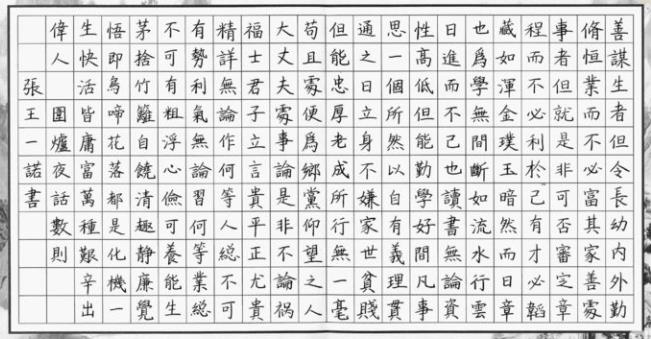 善謀生者但令長幼內外勤
脩恒業而不必富其家善處
事者但就是非可否審定章
程而不必利於己有才必韜
藏如渾金璞玉暗然而日章
也爲學無間斷如流水行雲
日進而不己也讀書無論資
性高低但能勤學好問凡事
思一個所然以自有義理貫
通之日立身不嫌家世貧賤
但能忠厚老成所行無一毫
苟且處便爲鄉黨仰望之人
大丈夫處事論是非不論禍
福士君子立言貴平正尤貴
精詳無論作何等人総不可
有勢利氣無論習何等業総
不可有粗浮心儉可養能生
茅捨竹籬自饒清趣靜廉覺
悟即鳥啼花落都是化機一
生快活皆庸富萬種艱辛出
偉人 圍爐夜話數則
張王一諾書